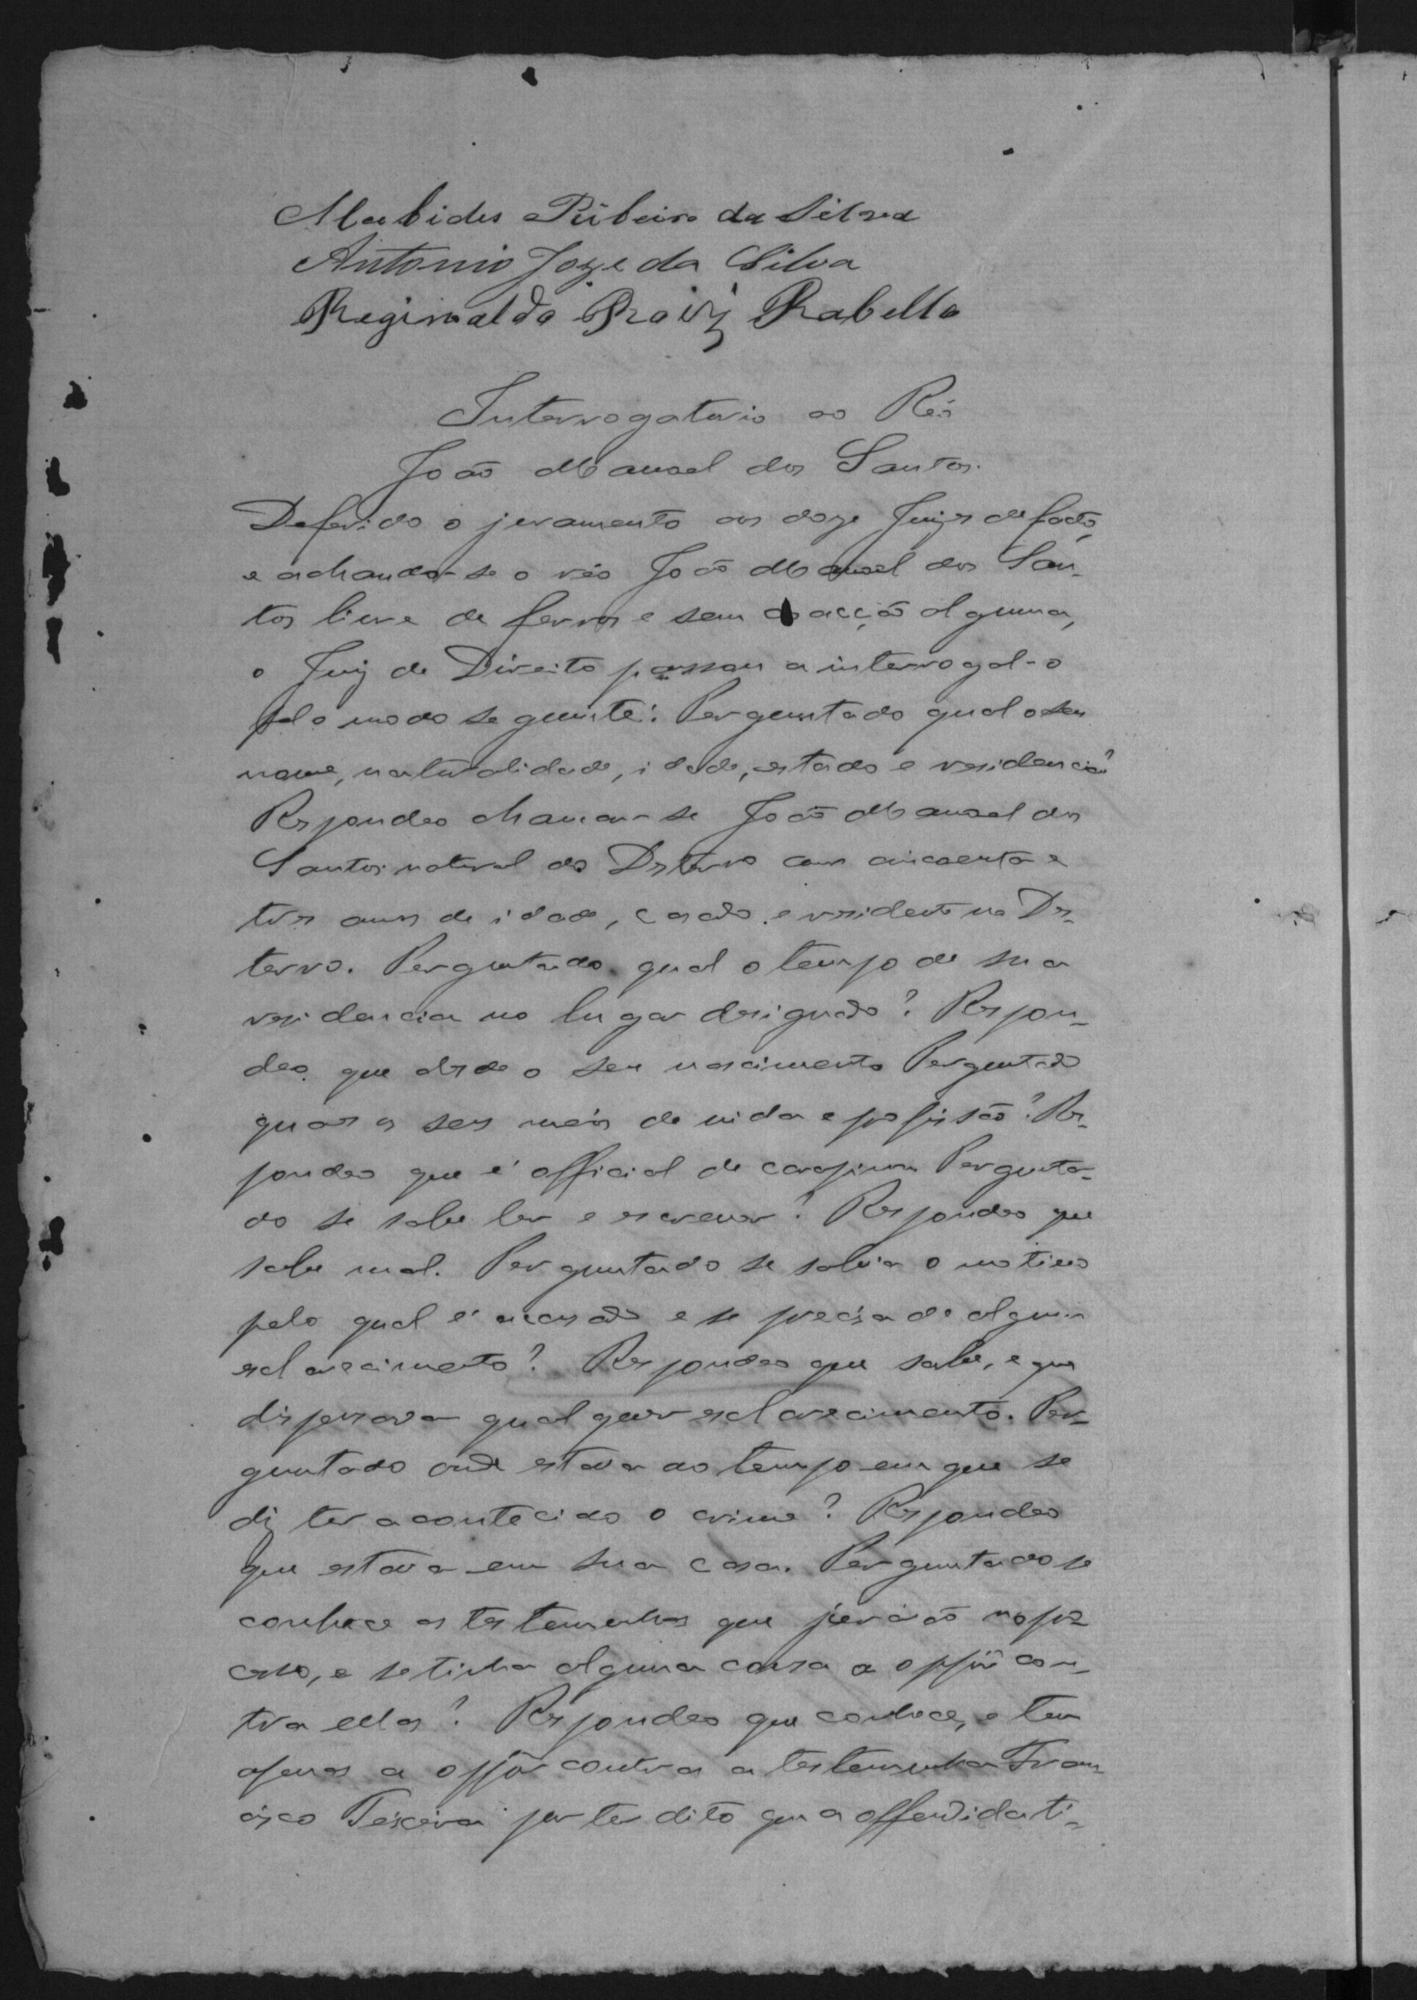 Alcebides Ribeiro da Silva
Antonio Joze da Silva
Reginaldo Rabello
Interrogatorio ao Réo
João Manoel dos Santos.
Deferido o juramento aos doze Juizes de facto,
e achando-se o réo João Manoel dos San-
tos livre de ferros e sem coacção alguma,
o Juiz de Direito passou a interrogal-o
pelo modo seguinte: Perguntado qual o seu
nome, naturalidade, idade, estado e residencia?
Respondeo chamar-se João Manoel dos
Santos natural do Desterro com cincoenta e
tres annos de idade, casado e residente no Des-
terro. Perguntado qual o tempo de sua
residencia no lugar designado? Respon-
deo que desde o seu nascimento Perguntado
quaes os seus meios de vida e profissão? Res-
pondeo que é official de carapina Pergunta-
do se sabe ler e escrever? Respondeo que
sabe mal. Perguntado se sabia o motivo
pelo qual é accusado e se precisa de algum
esclarecimento? Respondeo que sabe, e que
dispensava qualquer esclarecimento. Per-
guntado onde estava ao tempo em que se
diz ter acontecido o crime? Respondeo
que estava em sua casa. Perguntado se
conhece as testemunhas que jurarão no pro-
cesso, e se tinha alguma cousa a oppôr con-
tra ellas? Respondeo que conhece, e tem
apenas a oppôr contra a testemunha Fran-
cisco Teixeira por ter dito que a offendida ti-